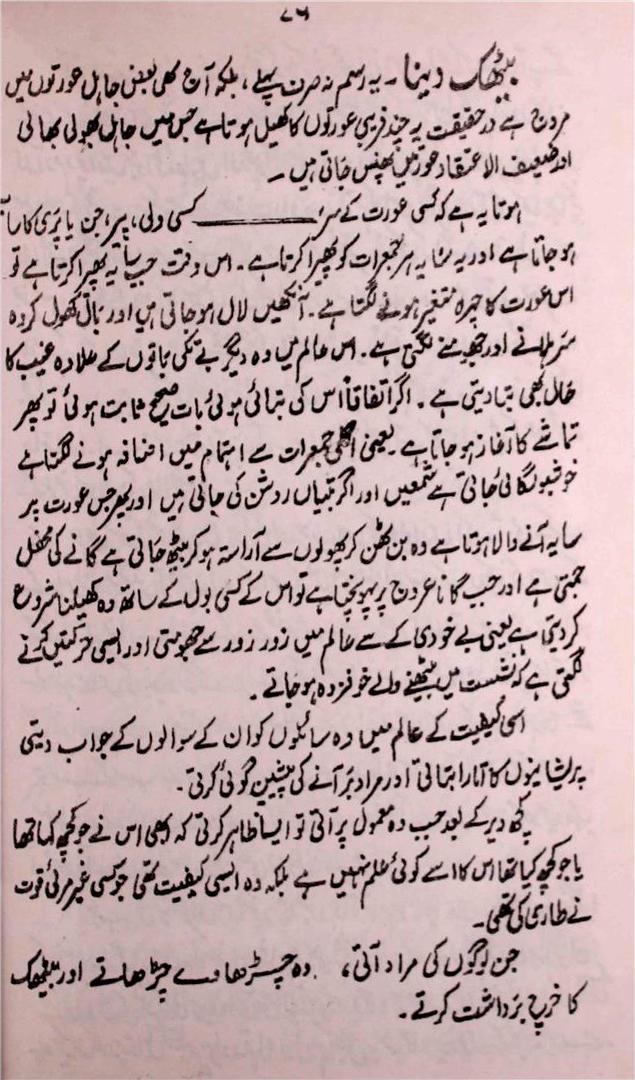 ۷۶
بیٹھک دینا۔ یہ رسم نہ صرف پہلے، بلکہ آج بھی بعض جاہل عورتوں میں
مروج ہے درحقیقت یہ چند فریبی عورتوں کا کھیل ہوتا ہے جس میں جاہل بھولی بھالی
اور ضعیف الاعتقاد عورتیں پھنس جاتی ہیں۔
ہوتا یہ ہے کہ کسی عورت کے سر پر ـــــــــ کسی ولی، پیر، جن یا پری کا سایہ
ہو جاتا ہے اور یہ سایہ ہر جمعرات کو پھیرا کرتا ہے۔ اس وقت جب سایہ پھیرا کرتا ہے تو
اس عورت کا چہرہ متغیر ہونے لگتا ہے۔ آنکھیں لال ہو جاتی ہیں اور بال کھول کر وہ
سر ہلانے اور جھومنے لگتی ہے۔ اس عالم میں وہ دیگر بے تکی باتوں کے علاوہ غیب کا
حال بھی بتا دیتی ہے۔ اگر اتفاقاً اس کی بتائی ہوئی بات صحیح ثابت ہوئی تو پھر
تماشے کا آغاز ہو جاتا ہے۔ یعنی اگلی جمعرات سے اہتمام میں اضافہ ہونے لگتا ہے
خوشبو لگائی جاتی ہے شمعیں اور اگر بتیاں روشن کی جاتی ہیں اور پھر جس عورت پر
سایہ آنے والا ہوتا ہے وہ بن ٹھن کر پھولوں سے آراستہ ہو کر بیٹھ جاتی ہے گانے کی محفل
جمتی ہے اور جب گانا عروج پر پہونچتا ہے تو اس کے کسی بول کے ساتھ وہ کھیلنا شروع
کر دیتی ہے یعنی بے خودی کے سے عالم میں زور زور سے جھومتی اور ایسی حرکتیں کرنے
لگتی ہے کہ نشست میں بیٹھنے والے خوفزدہ ہو جاتے۔
اسی کیفیت کے عالم میں وہ سائلوں کو ان کے سوالوں کے جواب دیتی
پریشانیوں کا اتار بتاتی اور مراد بر آنے کی پیشین گوئی کرتی۔
کچھ دیر کے بعد جب وہ معمول پر آتی تو ایسا ظاہر کرتی کہ ابھی اس نے جو کچھ کہا تھا
یا جو کچھ کیا تھا اس کا اسے کوئی علم نہیں ہے بلکہ وہ ایسی کیفیت تھی جو کسی غیر مرئی قوت
نے طاری کی تھی۔
جن لوگوں کی مراد آتی، وہ چڑھاوے چڑھاتے اور بیٹھک
کا خرچ برداشت کرتے۔